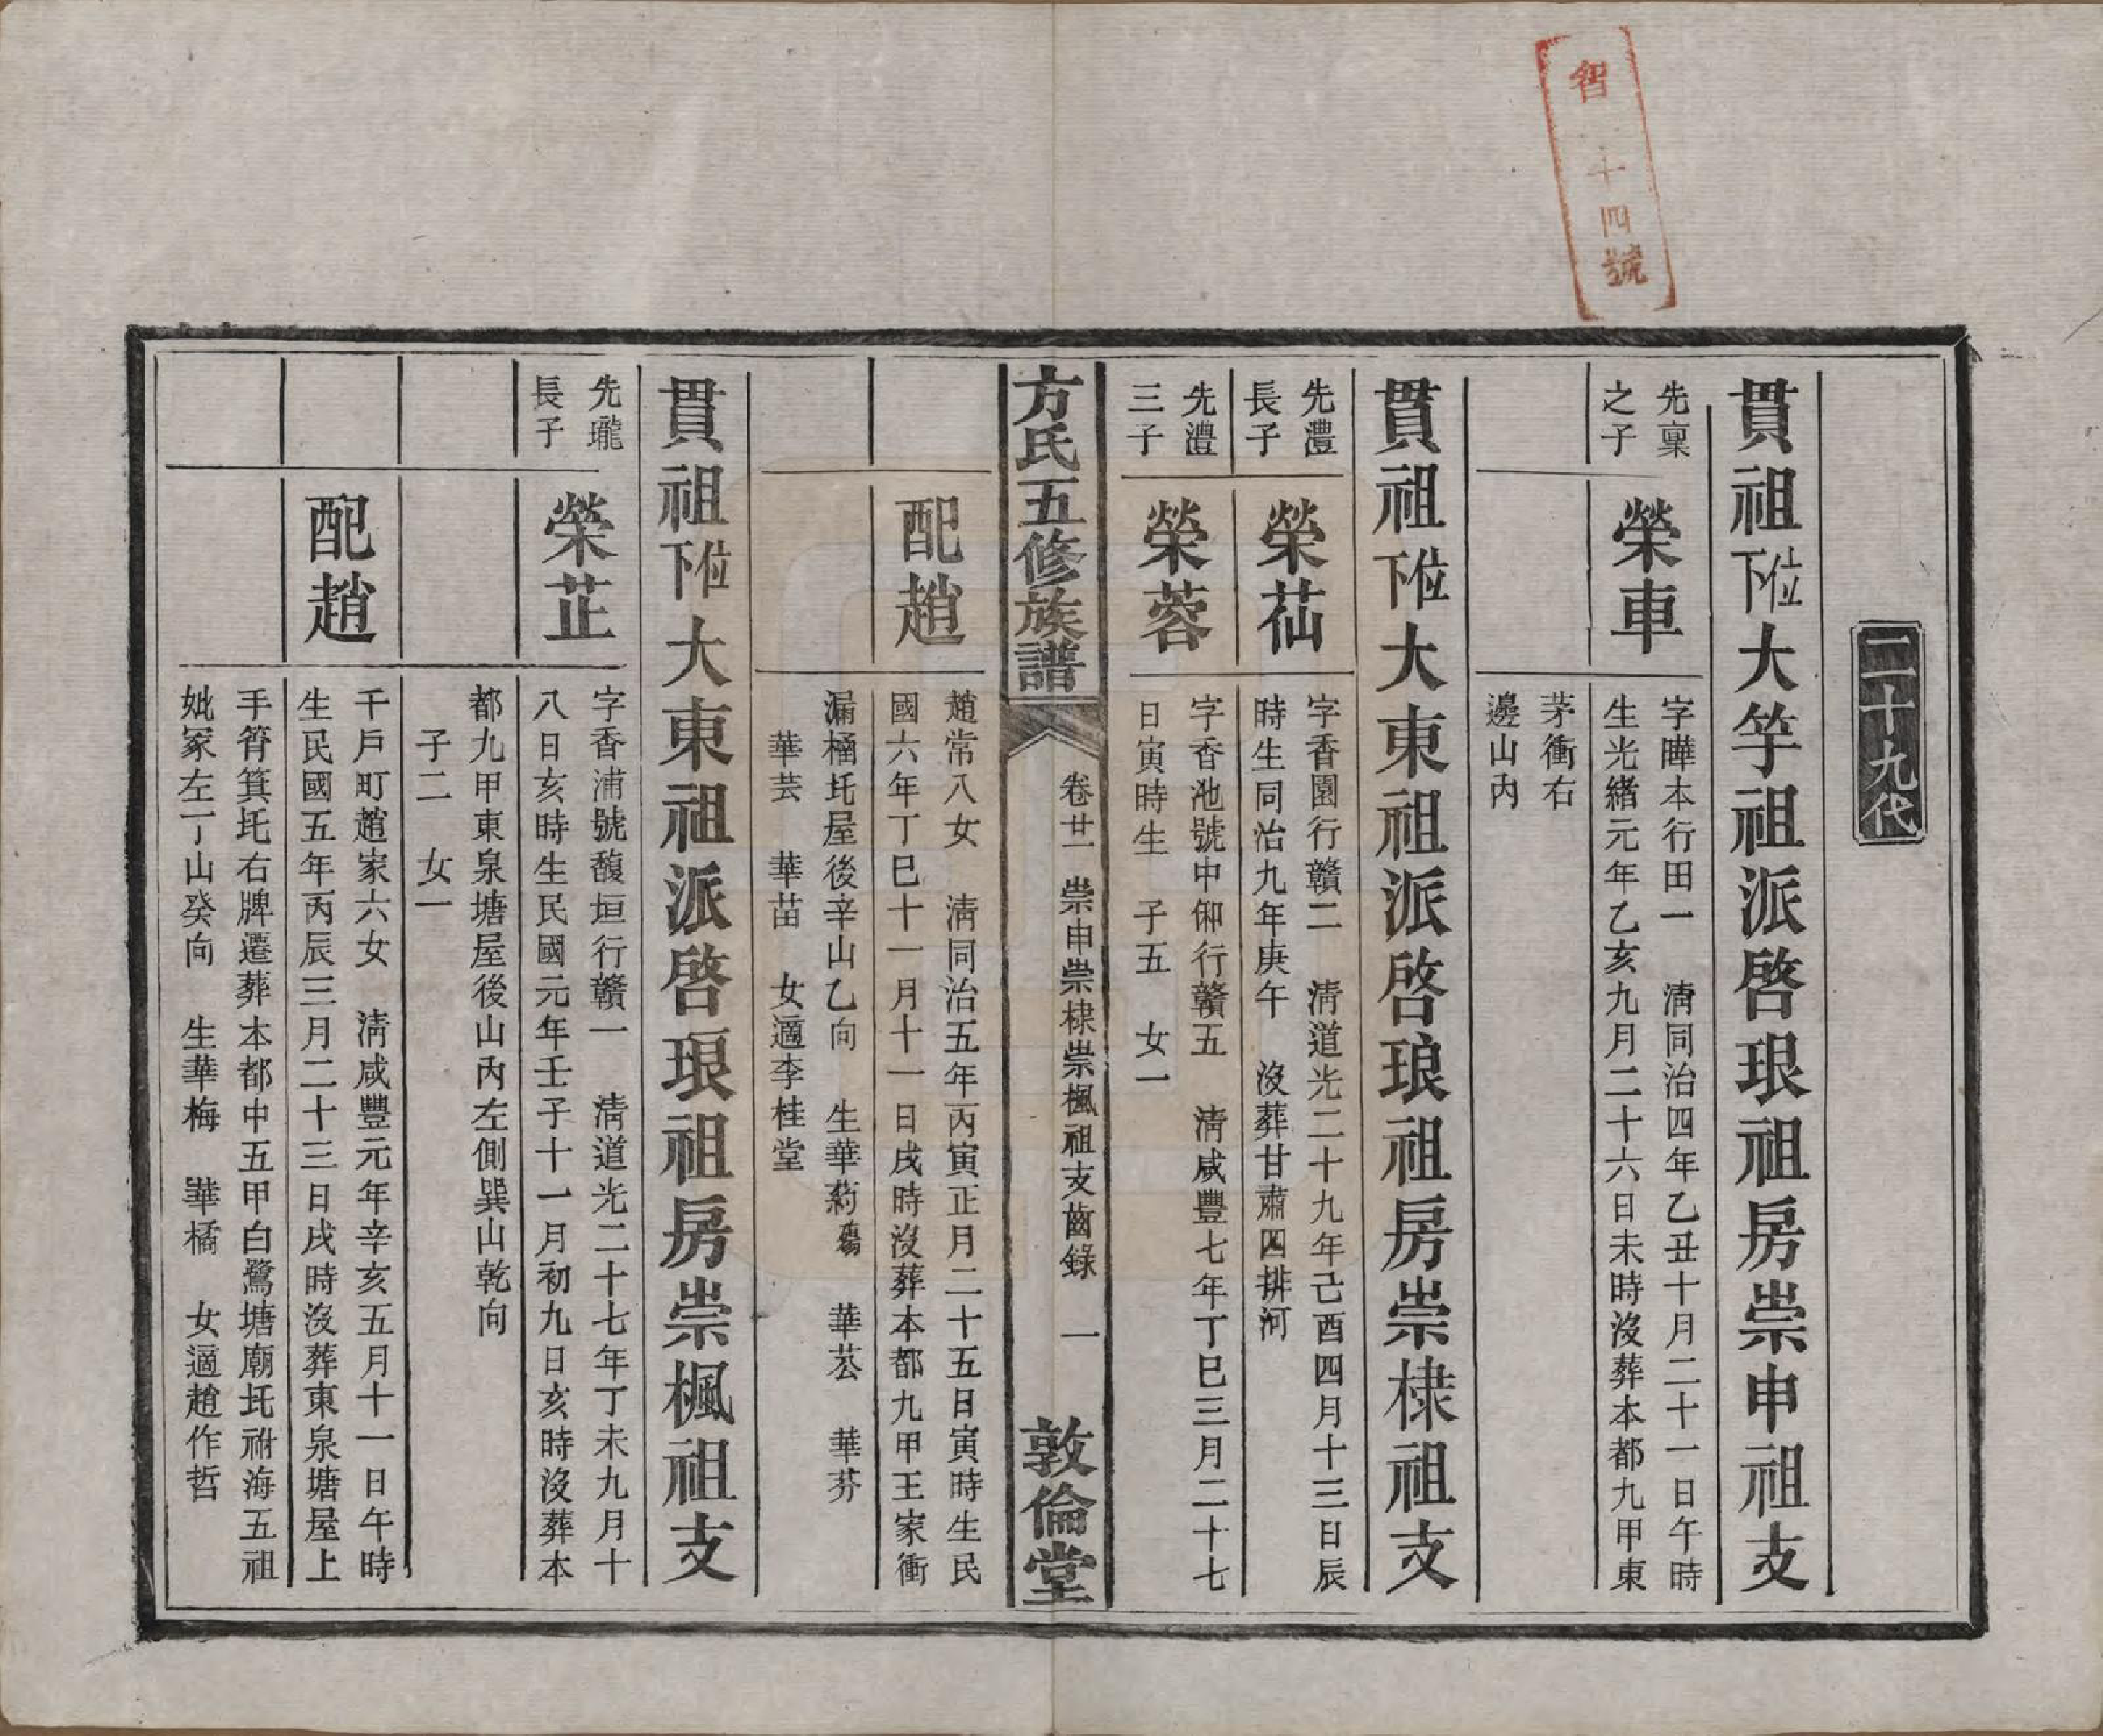 智
十四號
二十九代
貫祖位下大竽祖派啓珢祖房崇申祖支
先稟之子
榮車
字曄本行田一　淸同治四年乙丑十月二十一日午時
生光緒元年乙亥九月二十六日未時沒葬本都九甲東
茅衝右
邊山內
貫祖位下大東祖派啓琅祖房崇棣祖支
先澧長子
榮仙
字香園行贛二　淸道光二十九年己酉四月十三日辰
時生同治九年庚午　沒葬甘肅四排河
先澧三子
榮蓉
字香池號中卿行贛五　淸咸豐七年丁巳三月二十七
日寅時生　子五　女一
方氏五修族譜
卷廿一　崇申崇棣崇楓祖支齒錄　一
敦倫堂
配趙
趙常八女　淸同治五年丙寅正月二十五日寅時生民
國六年丁巳十一月十一日戌時沒葬本都九甲王家衝
漏桶圫屋後辛山乙向　生華葯殤　華荔　華芬
華芸　華苗　女適李桂堂
貫祖位下大東祖派啓珢祖房崇楓祖支
先瓏長子
榮芷
字香浦號馥垣行贛一　淸道光二十七年丁未九月十
八日亥時生民國元年壬子十一月初九日亥時沒葬本
都九甲東泉塘屋後山內左側巽山乾向
子二　女一
配趙
千戶町趙家六女　淸咸豐元年辛亥五月十一日午時
生民國五年丙辰三月二十三日戌時沒葬東泉塘屋上
手筲箕圫右牌遷葬本都中五甲白鷺塘廟圫祔海五祖
妣冢左丁山癸向　生華梅　華橘　女適趙作哲